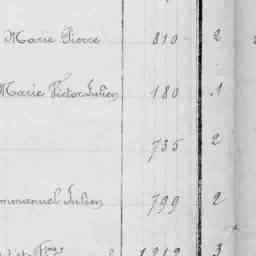 Marie Pierre 810 2
Marie Victor Julien 180 1
735 2
mmanuel Julien 799 2
1212 3